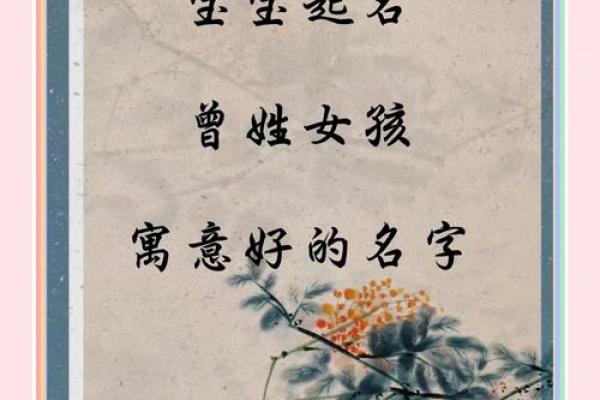 宝宝起名
曾姓女孩
寓意好的名字